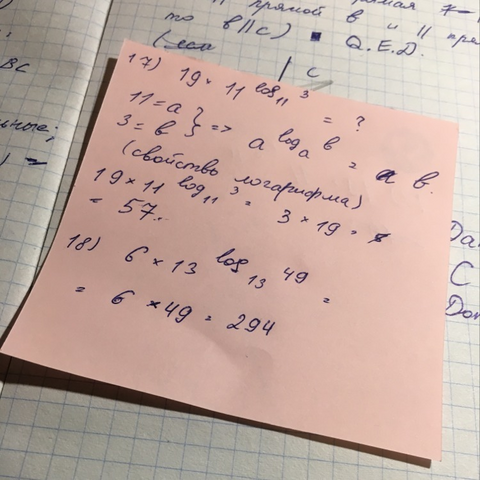 || прямой в и || пря
то в || с) ▪ Q.E.D.
(если
| с
ВС
ные;
17) 19 × 11 log₁₁ 3 = ?
11 = a } 
3 = b } => a log_a b = b.
(свойство логарифма)
19 × 11 log₁₁ 3 = 3 × 19 =
= 57..
18) 6 × 13 log₁₃ 49 =
= 6 × 49 = 294
Да
С
До